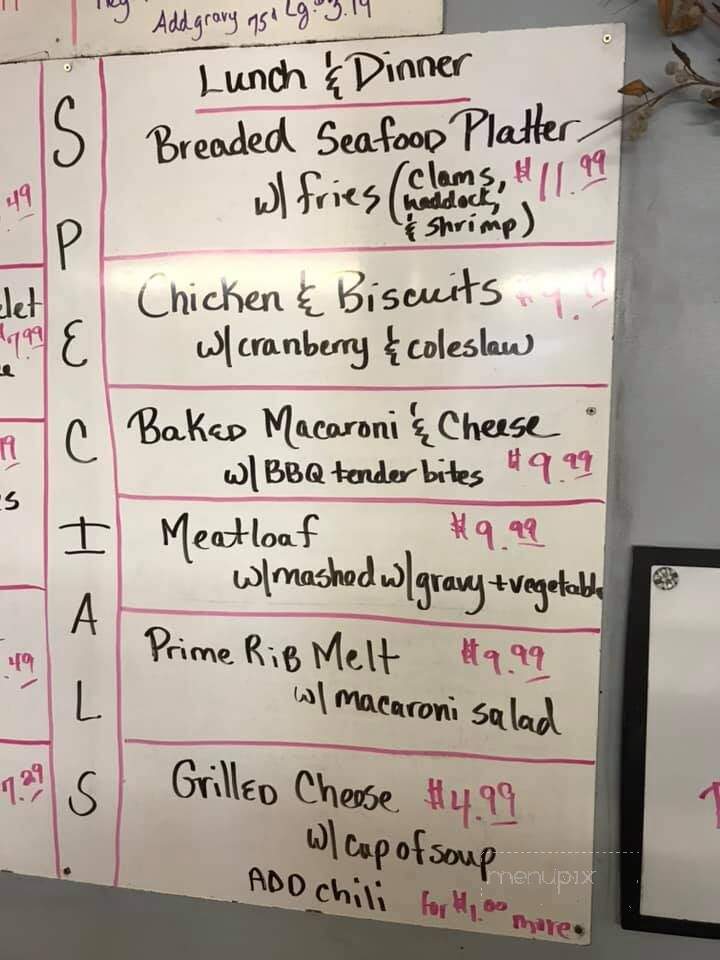 Add gravy 75¢ Lg. $3.19
SPECIALS
Lunch & Dinner
Breaded Seafood Platter
w/ fries (clams, $11.99
haddock,
& shrimp)
Chicken & Biscuits
w/cranberry & coleslaw
Baked Macaroni & Cheese
w/BBQ tender bites $9.99
Meatloaf $9.99
w/mashed w/gravy + vegetable
Prime Rib Melt $9.99
w/ macaroni salad
Grilled Cheese $4.99
w/ cup of soup
ADD chili for $1.00 more
.49
$7.99
.49
7.29
menupix